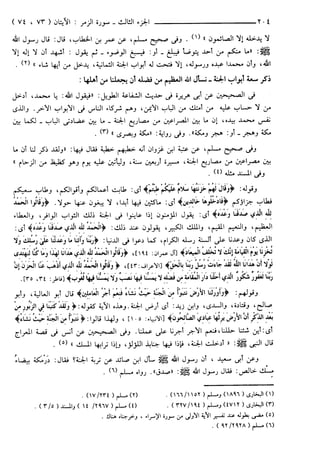 ٢٠٤ الجزء الثالث - سورة الزمر : الآيتان (٧٣ ، ٧٤)
لا يدخله إلا الصائمون» (١) . وفي صحيح مسلم، عن عمر بن الخطاب، قال: قال رسول الله
ﷺ: «ما منكم من أحد يتوضأ فيبلغ - أو: فيسبغ الوضوء - ثم يقول : أشهد أن لا إله إلا
الله، وأن محمدا عبده ورسوله، إلا فتحت له أبواب الجنة الثمانية، يدخل من أيها شاء» (٢) .
ذكر سعة أبواب الجنة - نسأل الله العظيم من فضله أن يجعلنا من أهلها :
في الصحيحين عن أبي هريرة في حديث الشفاعة الطويل: «فيقول الله: يا محمد، أدخل
من لا حساب عليه من أمتك من الباب الأيمن، وهم شركاء الناس في الأبواب الأخر. والذي
نفس محمد بيده، إن ما بين المصراعين من مصاريع الجنة - ما بين عضادتي الباب - لكما بين
مكة وهجر - أو: هجر ومكة». وفي رواية: «مكة وبصرى» (٣) .
وفي صحيح مسلم، عن عتبة ابن غزوان أنه خطبهم خطبة فقال فيها: «ولقد ذكر لنا أن ما
بين مصراعين من مصاريع الجنة، مسيرة أربعين سنة، وليأتين عليه يوم وهو كظيظ من الزحام»
وفي المسند مثله (٤) .
وقوله: ﴿وَقَالَ لَهُمْ خَزَنَتُهَا سَلَامٌ عَلَيْكُمْ طِبْتُمْ﴾ أي: طابت أعمالكم وأقوالكم، وطاب سعيكم
فطاب جزاؤكم ﴿فَادْخُلُوهَا خَالِدِينَ﴾ أي: ماكثين فيها أبدا، لا يبغون عنها حولا. ﴿وَقَالُوا الْحَمْدُ
لِلَّهِ الَّذِي صَدَقَنَا وَعْدَهُ﴾ أي: يقول المؤمنون إذا عاينوا في الجنة ذلك الثواب الوافر، والعطاء
العظيم، والنعيم المقيم، والملك الكبير، يقولون عند ذلك: ﴿الْحَمْدُ لِلَّهِ الَّذِي صَدَقَنَا وَعْدَهُ﴾ أي:
الذي كان وعدنا على ألسنة رسله الكرام، كما دعوا في الدنيا: ﴿رَبَّنَا وَآتِنَا مَا وَعَدْتَنَا عَلَى رُسُلِكَ وَلَا
تُخْزِنَا يَوْمَ الْقِيَامَةِ إِنَّكَ لَا تُخْلِفُ الْمِيعَادَ﴾ [آل عمران: ١٩٤]، ﴿وَقَالُوا الْحَمْدُ لِلَّهِ الَّذِي هَدَانَا لِهَذَا وَمَا كُنَّا لِنَهْتَدِيَ
لَوْلَا أَنْ هَدَانَا اللَّهُ لَقَدْ جَاءَتْ رُسُلُ رَبِّنَا بِالْحَقِّ﴾ [الأعراف: ٤٣]، ﴿وَقَالُوا الْحَمْدُ لِلَّهِ الَّذِي أَذْهَبَ عَنَّا الْحَزَنَ إِنَّ
رَبَّنَا لَغَفُورٌ شَكُورٌ الَّذِي أَحَلَّنَا دَارَ الْمُقَامَةِ مِنْ فَضْلِهِ لَا يَمَسُّنَا فِيهَا نَصَبٌ وَلَا يَمَسُّنَا فِيهَا لُغُوبٌ﴾ [فاطر: ٣٤، ٣٥].
وقولهم: ﴿وَأَوْرَثَنَا الْأَرْضَ نَتَبَوَّأُ مِنَ الْجَنَّةِ حَيْثُ نَشَاءُ فَنِعْمَ أَجْرُ الْعَامِلِينَ﴾ قال أبو العالية، وأبو
صالح، وقتادة، والسدي، وابن زيد: أي أرض الجنة. وهذه الآية كقوله: ﴿وَلَقَدْ كَتَبْنَا فِي الزَّبُورِ مِنْ
بَعْدِ الذِّكْرِ أَنَّ الْأَرْضَ يَرِثُهَا عِبَادِيَ الصَّالِحُونَ﴾ [الأنبياء: ١٠٥]، ولهذا قالوا: ﴿نَتَبَوَّأُ مِنَ الْجَنَّةِ حَيْثُ نَشَاءُ﴾
أي: أين شئنا حللنا، فنعم الأجر أجرنا على عملنا. وفي الصحيحين عن أنس في قصة المعراج
قال النبي ﷺ: «أدخلت الجنة، فإذا فيها جنابذ اللؤلؤ، وإذا ترابها المسك» (٥) .
وعن أبي سعيد ، أن رسول الله ﷺ سأل ابن صائد عن تربة الجنة؟ فقال: دَرْمَكة بيضاءُ
مسك خالص: فقال رسول الله ﷺ: «صدق». رواه مسلم (٦) .
(١) البخاري (١٨٩٦) ومسلم (١١٥٢/ ١٦٦) . (٢) مسلم (٢٣٤/ ١٧) .
(٣) البخاري (٤٧١٢) ومسلم (١٩٤/ ٣٢٧) . (٤) مسلم (٢٩٦٧/ ١٤) والمسند (٥/٣) .
(٥) مضى بطوله عند تفسير الآية الأولى من سورة الإسراء ، وخرجناه هناك .
(٦) مسلم (٢٩٢٨/ ٩٢) .